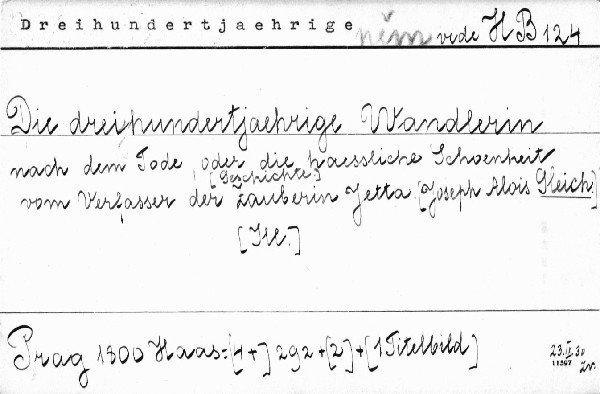 Dreihundertjaehrige něm vide H B 124
Die dreihundertjaehrige Wandlerin
nach dem Tode, oder die haessliche Schoenheit
[Geschichte]
vom Verfasser der Zauberin Jetta [Joseph Alois Gleich.]
[Ill.]
Prag 1800 Haas=[4+] 292+[2]+[1 Titelbild]
23.II.30
11367 Zv.